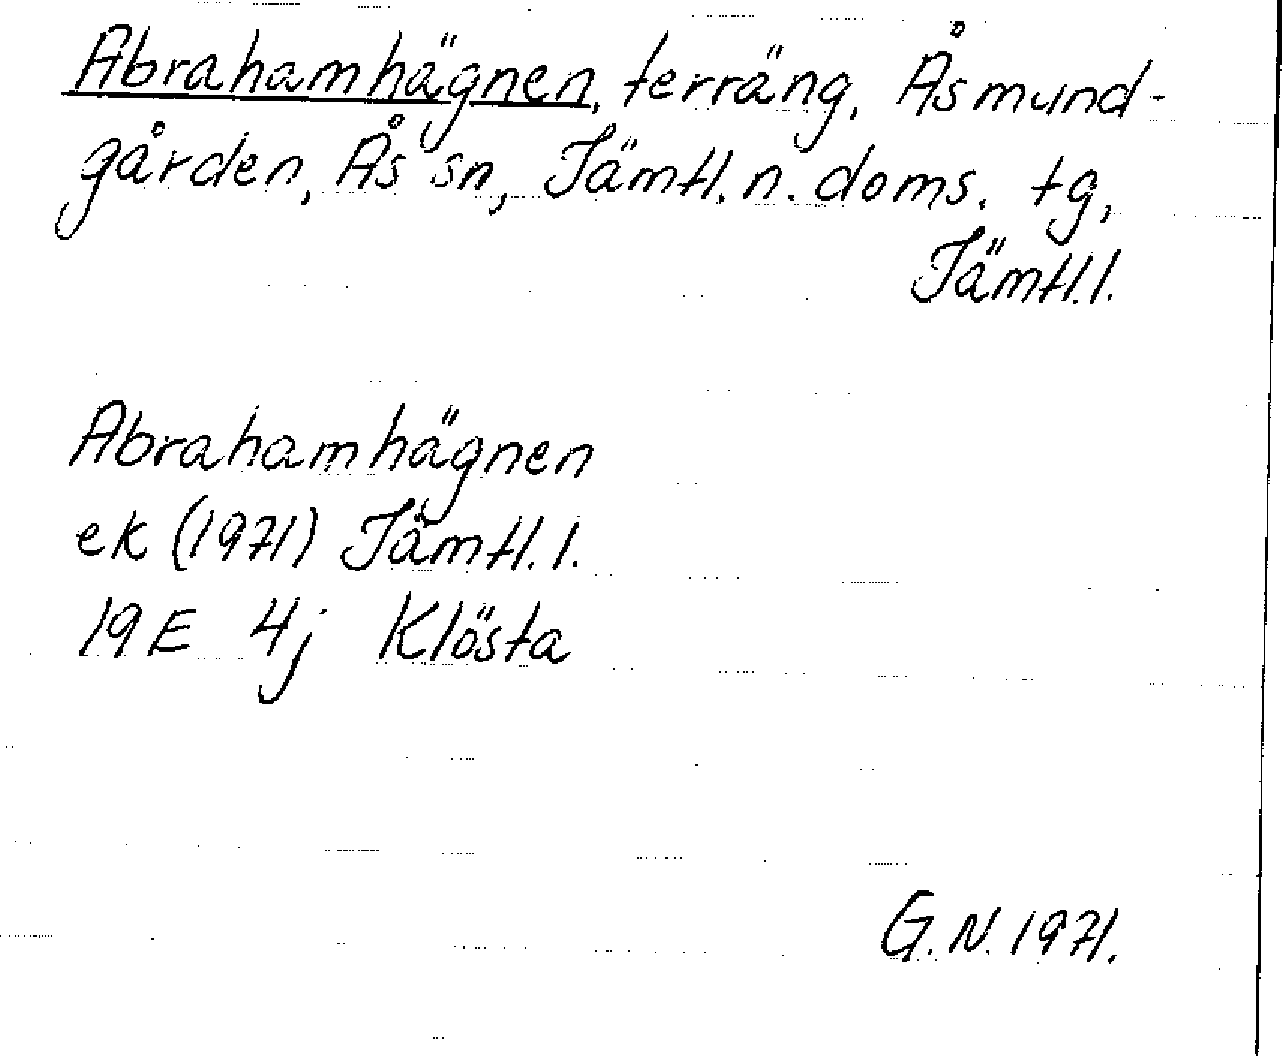 Abrahamhägnen, terräng, Åsmund-
gården, Ås sn, Jämtl. n. doms. tg,
Jämtl. l.
Abrahamhägnen
ek (1971) Jämtl. l.
19E 4j Klösta
G.N. 1971.